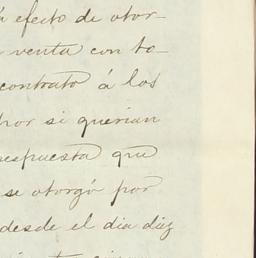 efecto de otor-
venta con to-
contrato á los
por si querian
respuesta que
se otorgó por
desde el dia diez